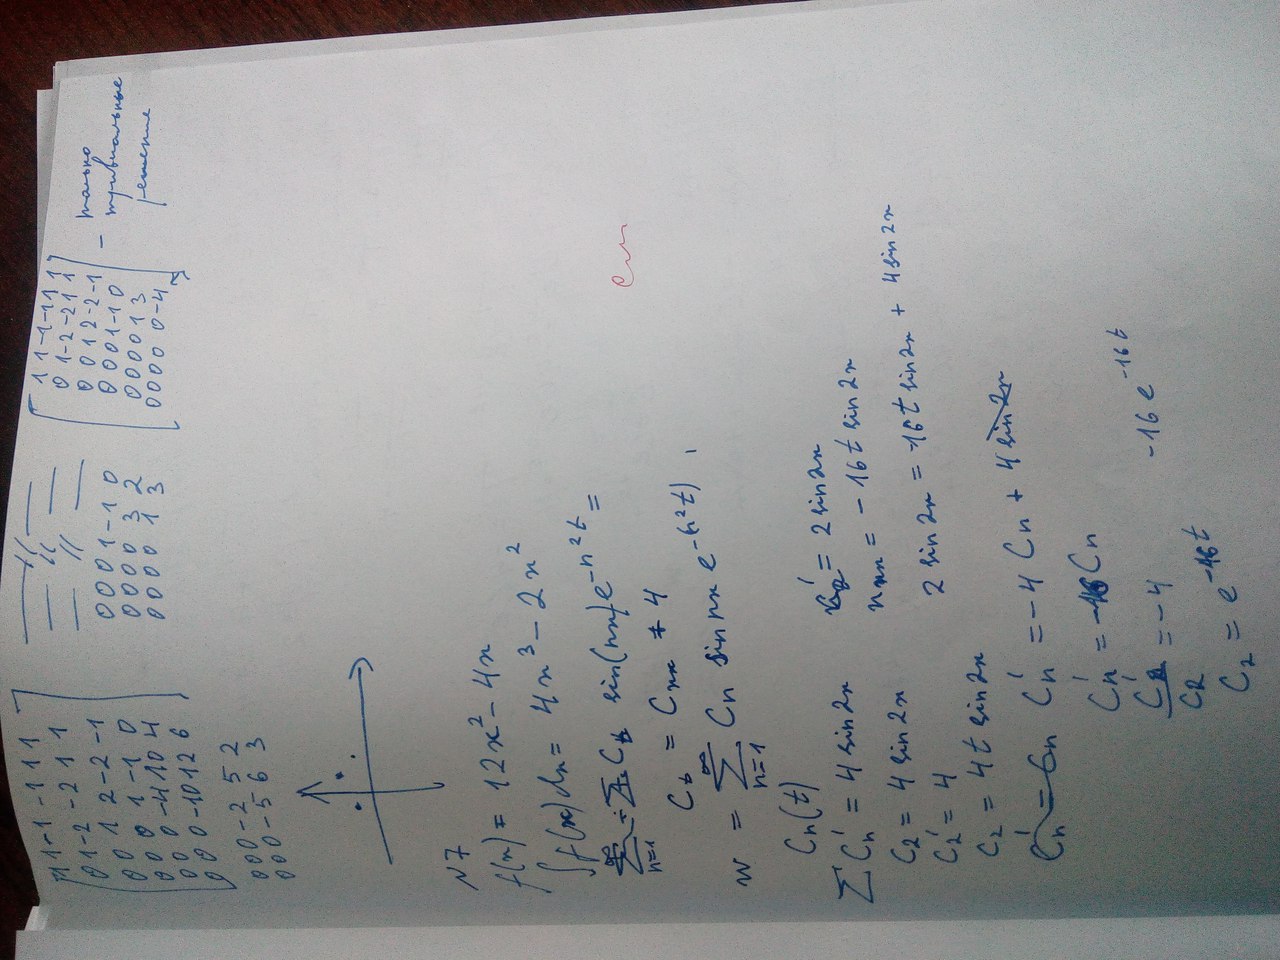 1 1 -1 -1 1 1
0 1 -2 -2 1 1
0 0 1 2 -2 -1
0 0 0 1 -1 0
0 0 0 -4 10 4
0 0 0 -10 12 6
0 0 0 -2 5 2
0 0 0 -5 6 3
— // —
— // —
— // —
0 0 0 1 -1 0
0 0 0 0 3 2
0 0 0 0 1 3
1 1 -1 -1 1 1
0 1 -2 -2 1 1
0 0 1 2 -2 -1
0 0 0 1 -1 0
0 0 0 0 1 3
0 0 0 0 0 -4
- только
тривиальные
решение
N7
f(x) = 12x² - 4x
∫ f(x) dx = 4x³ - 2x²
sin(nx) e^{-n²t} =
C_t = C_xx + 4
w = ∑_{n=1}^{∞} C_n sin nx e^{-(n²t)},
C_n(t)
∑ C_n' = 4 sin 2x
C_2 = 4 sin 2x
C_2' = 4
C_2 = 4t sin 2x
= 2 sin 2x
xx = -16 t sin 2x
2 sin 2x = -16 t sin 2x + 4 sin 2x
C_n' = -4 C_n + 4 sin 2x
C_n' = -16 C_n
C_2'/C_2 = -4
-16 e^{-16t}
C_2 = e^{-16t}